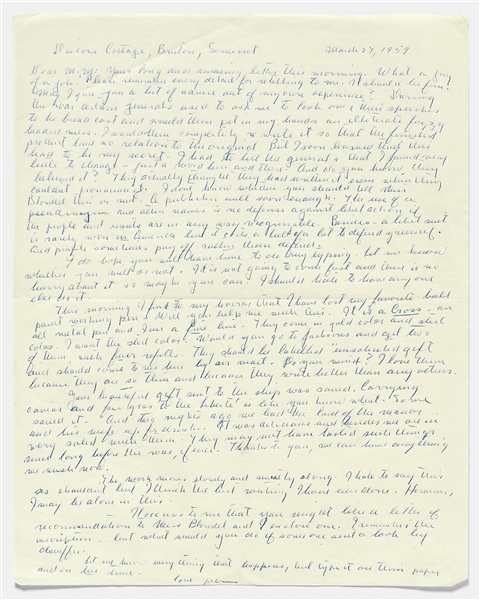 Discove Cottage, Bruton, Somerset March 24, 1959
Dear M.M: Your long and amusing letter this morning. What a
of a job. Please remember every detail for retelling to me. It should be fun.
May I give you a bit of advice out of my own experience? During
the war certain generals used to ask me to look over their speeches
to be broadcast and would then put in my hands an illiterate
I would then completely re write it so that the finished
product had no relation to the original. But I soon learned that this
had to be my secret. I had to tell the generals that I found very
little to change — just a word here and there. And do you know they
believed it? They actually thought they had written it even when they
couldn't pronounce it. I don't know whether you should tell Miss
Blondel this or not. A publisher will soon enough. The use of a
pseudonym and other names is no defense against libel action if
the people and events are in any way recognizable. a libel suit
is rarely won in America but it costs a hell of a lot to defend yourself.
And people sometimes pay off rather than defend.
I do hope you will have time to do my typing. Let me know
whether you will or not. It is not going to come fast and there is no
hurry about it so maybe you can. I should hate to have anyone
else do it.
This morning I find to my horror that I have lost my favorite ball
point working pen. Will you help me with this. It is a Cross — an
all metal pen and I use a fine line. They come in gold color and steel
color. I want the steel color. Would you go to and get two
of them with four refills. They should be labelled unsolicited gift
and should come to me here by air mail. Do you mind? I love them
because they are so thin and because they write better than any others.
Your beautiful gift sent to the ship was saved. Carrying
caviar and foie gras to the Liberté is like you know what. So we
saved it. And two nights ago we had the lord of the manor
and his wife in for drinks. It was delicious and besides we are in
very solid with them. They may not have tasted such things
since long before the war, if ever. Thanks to you, we can have anything
we wish now.
The work moves slowly and surely along. I hate to say this
as standard but I think the best writing I have ever done. However,
I may be alone in this.
It occurs to me that you might like a letter of
recommendation to Miss Blondel and I enclose one. I remember the
inscription. But what would you do if someone sent a book by
Let me know everything that happens, but type it on thin paper
and on two sides.
love